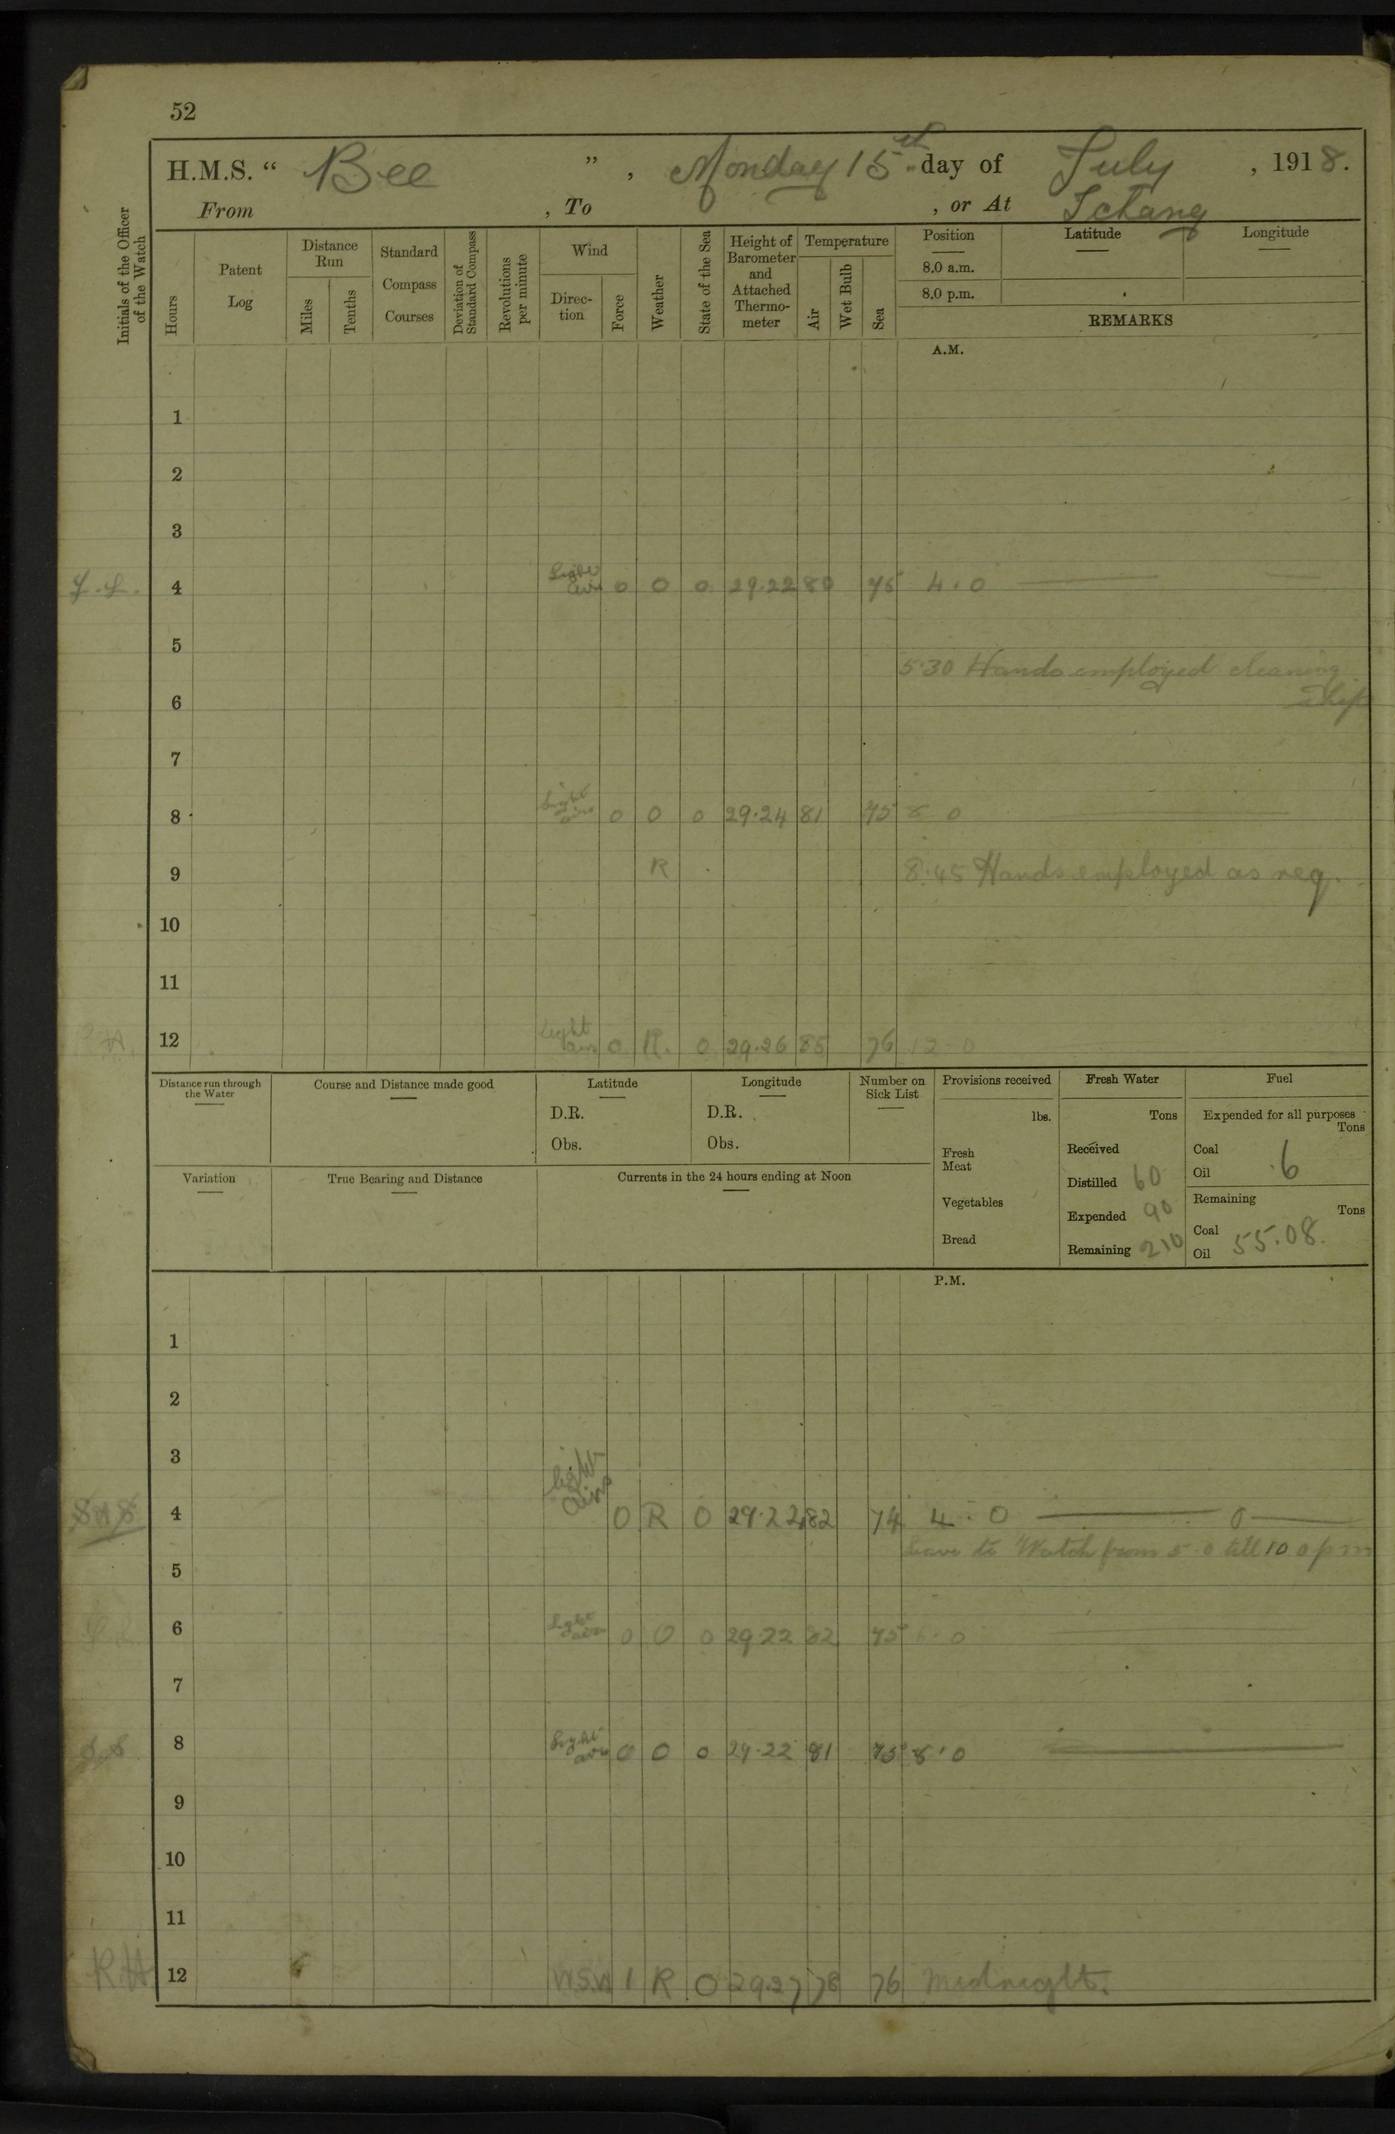 52
H.M.S. “ Bee ” , Monday 15th day of July , 1918.
From , To , or At Ichang
Initials of the Officer of the Watch
Hours
Patent Log
Distance Run
Miles
Tenths
Standard Compass Courses
Deviation of Standard Compass
Revolutions per minute
Wind
Direc-tion
Force
Weather
State of the Sea
Height of Barometer and Attached Thermo-meter
Temperature
Air
Wet Bulb
Sea
Position Latitude Longitude
8.0 a.m.
8.0 p.m.
REMARKS
A.M.
1
2
3
4 Light airs 0 0 0 29.22 80 75 4.0
5
5.30 Hands employed cleaning
6 Ship
7
8 Light airs 0 0 0 29.24 81 75 8 0
9 R 8.45 Hands employed as req.
10
11
12 Light airs 0 R. 0 29.26 85 76 12.0
Distance run through the Water
Course and Distance made good
Latitude
D.R.
Obs.
Longitude
D.R.
Obs.
Number on Sick List
Provisions received
lbs.
Fresh Meat
Vegetables
Bread
Fresh Water
Tons
Received
Distilled 60
Expended 90
Remaining 210
Fuel
Expended for all purposes
Tons
Coal
Oil .6
Remaining
Tons
Coal
Oil 55.08.
Variation
True Bearing and Distance
Currents in the 24 hours ending at Noon
P.M.
1
2
3
4 light airs 0 R 0 29.22 82 74 4.0 0
Leave to Watch from 5.0 till 10 0 pm
5
6 Light airs 0 0 0 29.22 82 75 6.0
7
8 Light airs 0 0 0 29.22 81 75 8.0
9
10
11
R.H. 12 W.S.W 1 R 0 29.27 78 76 Midnight.